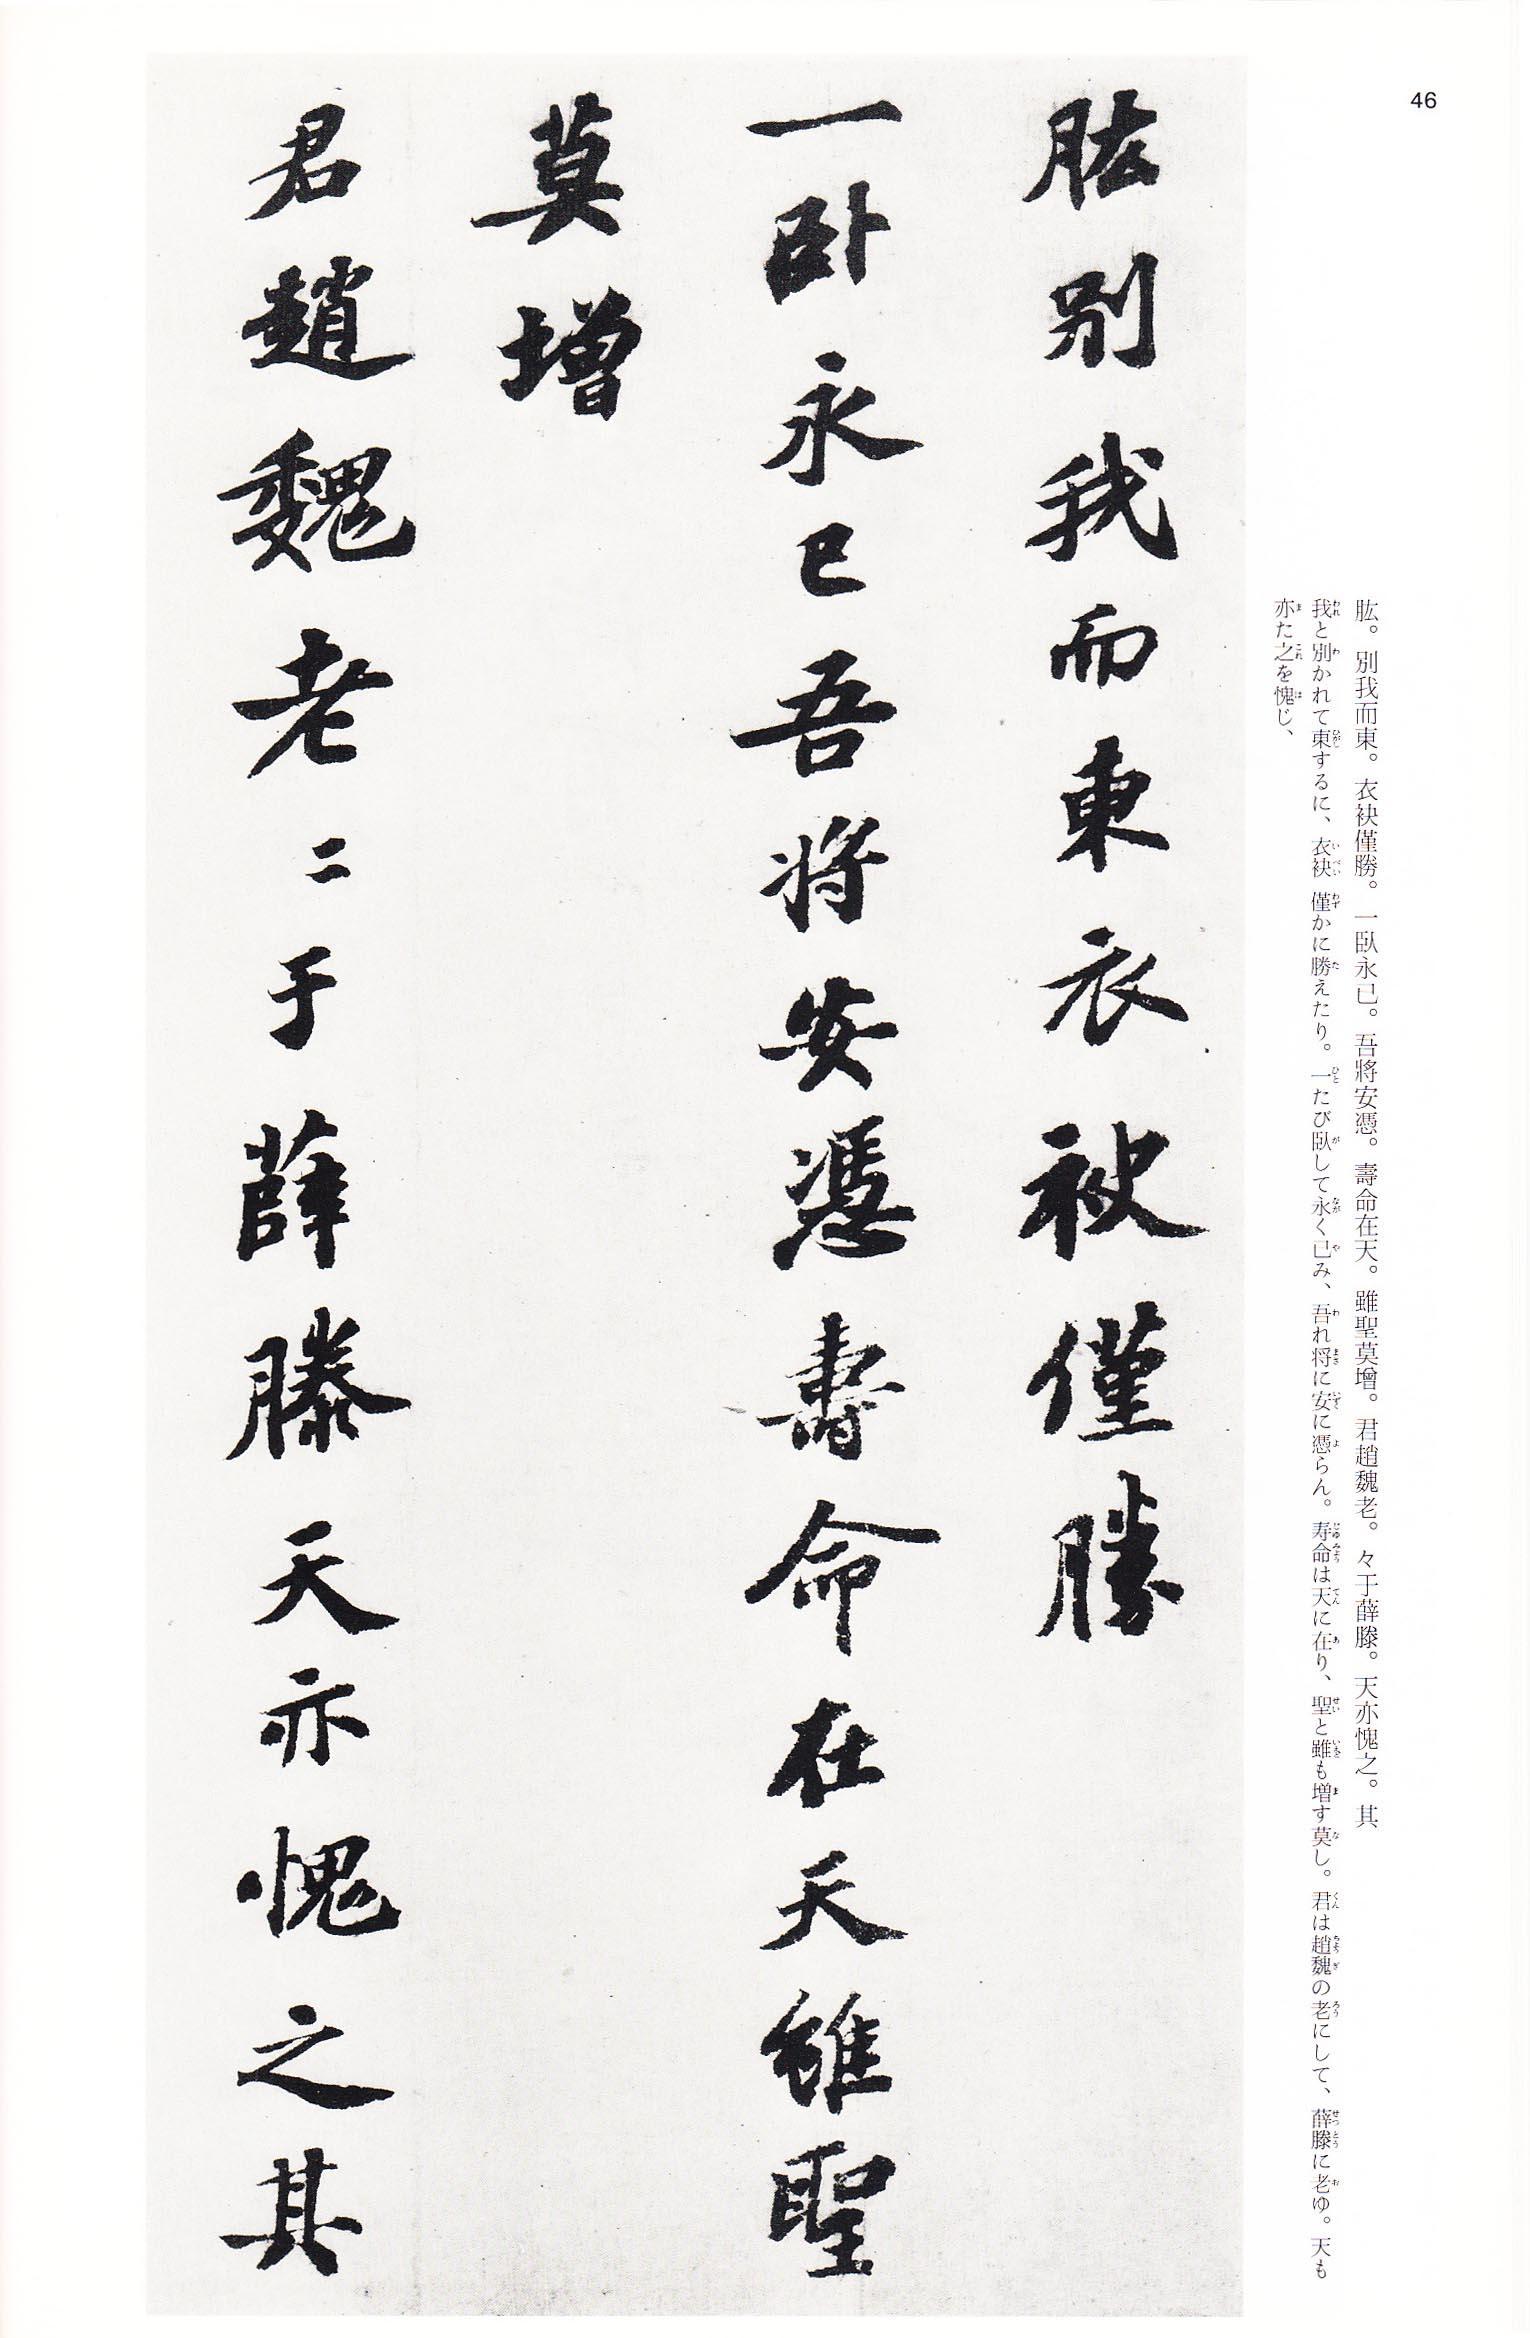 46
肱。別我而東。衣袂僅勝。一臥永已。吾將安憑。壽命在天。雖聖莫增。君趙魏老。々于薛滕。天亦愧之。其
我と別かれて東するに、衣袂僅かに勝えたり。一たび臥して永く已み、吾れ将に安に憑らん。寿命は天に在り、聖と雖も増す莫し。君は趙魏の老にして、薛滕に老ゆ。天も
亦た之を愧じ、
肱別我而東衣袂僅勝
一臥永已吾將安憑壽命在天雖聖
莫增
君趙魏老〻于薛滕天亦愧之其